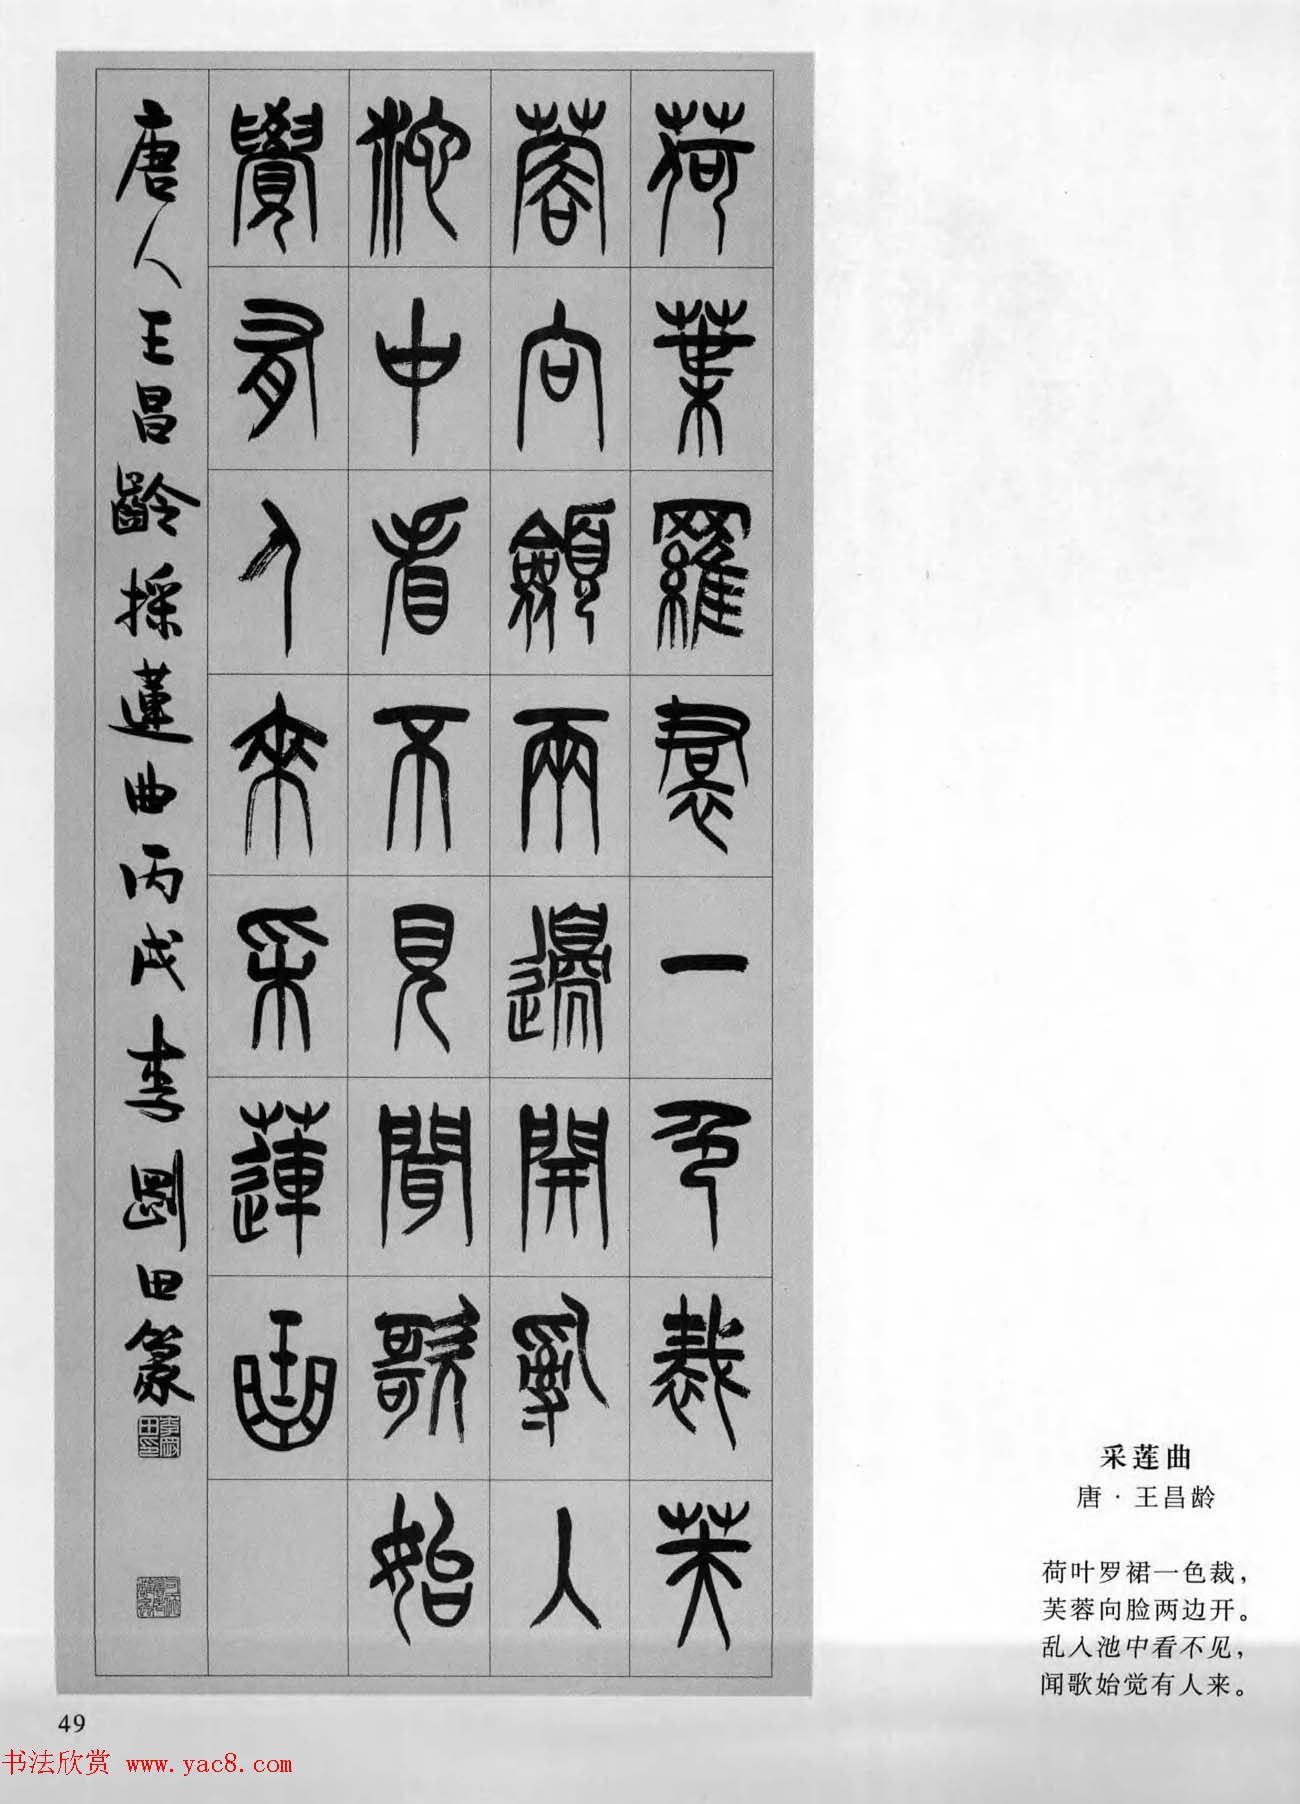 荷葉羅裠一色裁芙
蓉向臉兩邊開亂人
池中看不見聞歌始
覺有人來采蓮曲
唐人王昌齡採蓮曲丙戌李剛田篆
采莲曲
唐·王昌龄
荷叶罗裙一色裁，
芙蓉向脸两边开。
乱入池中看不见，
闻歌始觉有人来。
49
书法欣赏 www.yac8.com